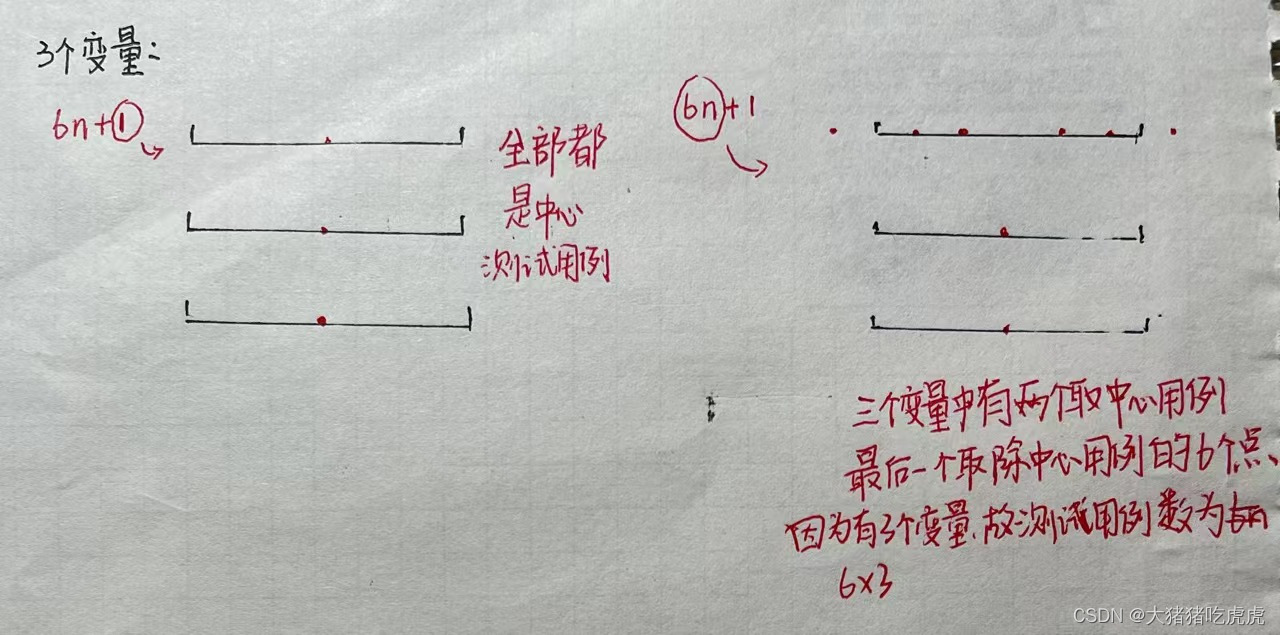 3个变量：
6n+1
全部都
是中心
测试用例
6n+1
三个变量中有两个取中心用例
最后一个取除中心用例的6个点、
因为有3个变量,故测试用例数为
6×3
CSDN @大猪猪吃虎虎